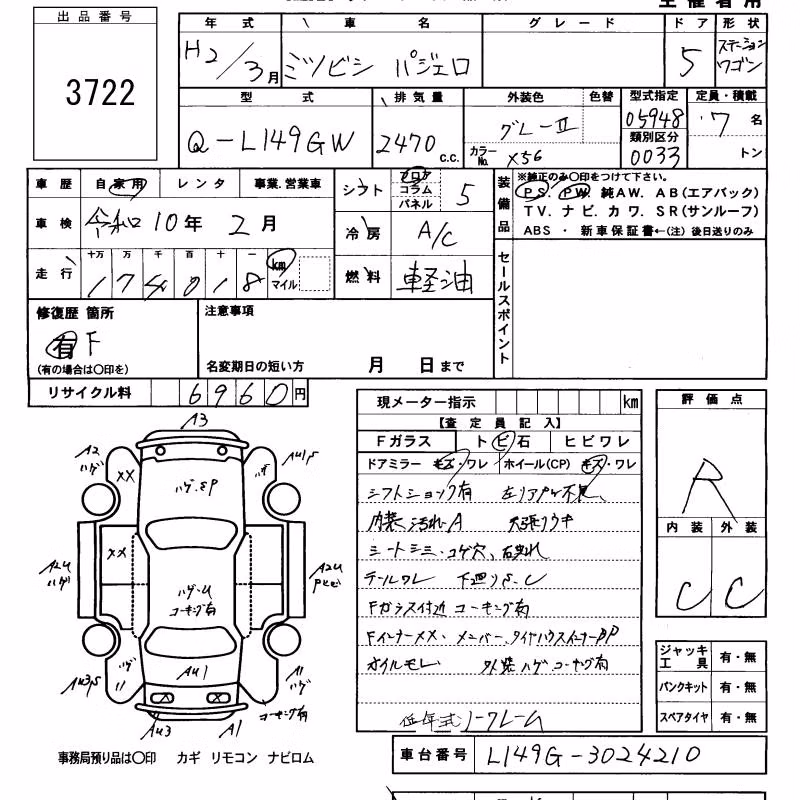 主催者用
出品番号
3722
年式 車名 グレード ドア 形状
H2/3月 ミツビシ パジェロ 5 ステーションワゴン
型式 排気量 外装色 色替 型式指定 定員・積載
Q-L149GW 2470 c.c. グレーⅡ カラーNo. X56 05948 7名
類別区分
0033 トン
車歴 自家用 レンタ 事業.営業車
シフト フロア コラム パネル 5
装備品 ※純正のみ〇印をつけて下さい。
PS. PW. 純AW. AB(エアバック)
TV. ナビ. カワ. SR(サンルーフ)
ABS ・ 新車保証書←(注) 後日送りのみ
車検 令和10年2月
冷房 A/C
走行 十万 万 千 百 十 一
174018 km マイル
燃料 軽油
セールスポイント
修復歴 箇所
有 F
(有の場合は〇印を)
注意事項
名変期日の短い方 月 日まで
リサイクル料 6960円
現メーター指示 km
【査定員記入】
Fガラス トビ石 ヒビワレ
ドアミラー キズ・ワレ ホイール(CP) キズ・ワレ
シフトショック有 左リアパワー不良
内装汚れ・A 天張りウキ
シートシミ・コゲ穴、破れ
テールワレ 下廻りS・U
Fガラス付近コーキング有
Fインナーxx、メンバー、タイヤハウスインナーPP
オイルモレ 外装ハゲコーキング有
低年式ノークレーム
評価点
R
内装 外装
C C
ジャッキ工具 有・無
パンクキット 有・無
スペアタイヤ 有・無
A3
A2 ハゲ
xx
ハゲ・EP
ハゲ
A41S
A24 ハゲ
xx
ハゲ・U
コーキング有
A24
A43S
ハゲ
A41
A1
ハゲ
コーキング有
x x
A43
A1
事務局預り品は〇印 カギ リモコン ナビロム
車台番号 L149G-3024210